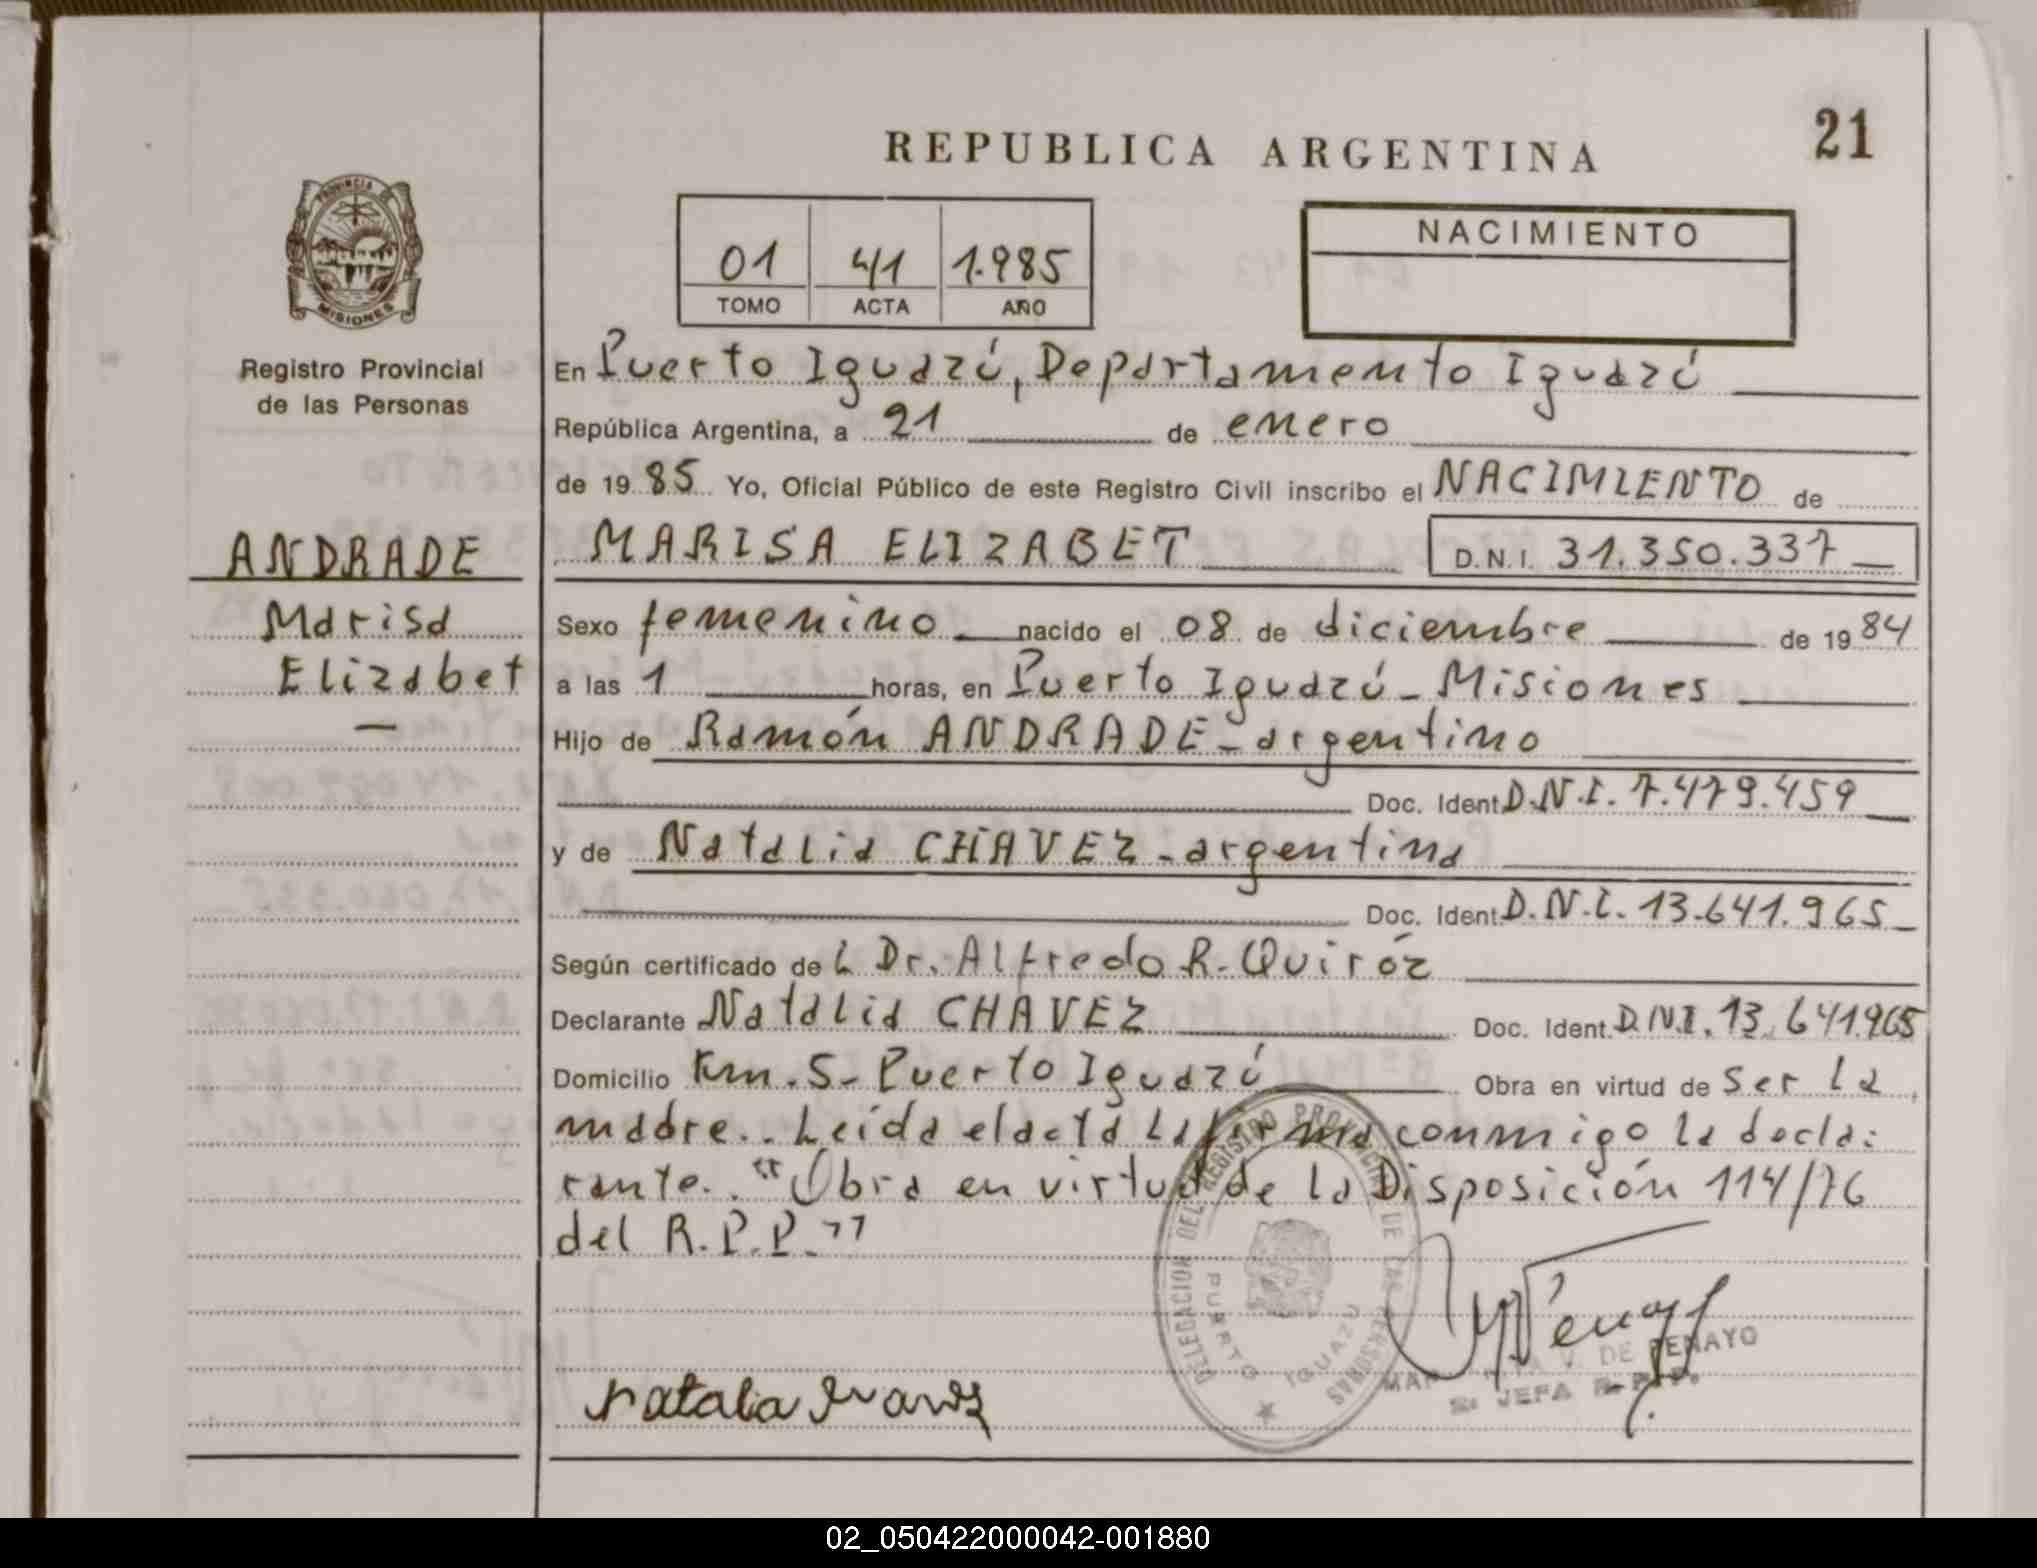 21
REPUBLICA ARGENTINA
PROVINCIA DE
MISIONES
Registro Provincial
de las Personas
01 41 1.985
TOMO ACTA AÑO
NACIMIENTO
En Puerto Iguazú, Departamento Iguazú
República Argentina, a 21 de enero
de 1985 Yo, Oficial Público de este Registro Civil inscribo el NACIMIENTO de
ANDRADE
Marisa
Elizabet
MARISA ELIZABET D.N.I. 31.350.337
Sexo femenino nacido el 08 de diciembre de 1984
a las 1 horas, en Puerto Iguazú - Misiones
Hijo de Ramón ANDRADE - argentino
Doc. Ident D.N.I. 7.479.459
y de Natalia CHAVEZ - argentina
Doc. Ident D.N.I. 13.641.965
Según certificado del Dr. Alfredo R. Quiróz
Declarante Natalia CHAVEZ Doc. Ident. D.N.I. 13.641.965
Domicilio Km. 5 - Puerto Iguazú Obra en virtud de ser la
madre.. Leída el acta la firma conmigo la decla:
rante.. "Obra en virtud de la Disposición 114/76
del R.P.P."
DELEGACION DEL REGISTRO PROVINCIAL DE LAS PERSONAS
PUERTO IGUAZU
V. DE PENAYO
JEFA R.P.P.
Natalia
02_050422000042-001880